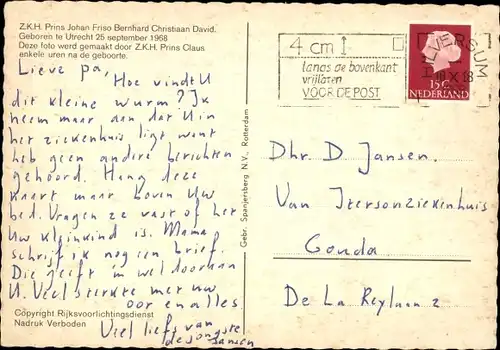 Z.K.H. Prins Johan Friso Bernhard Christiaan David.
Geboren te Utrecht 25 september 1968
Deze foto werd gemaakt door Z.K.H. Prins Claus
enkele uren na de geboorte.
Lieve pa,
Hoe vindt U
dit kleine wurm? Ik
neem maar aan dat U in
het ziekenhuis ligt want
heb geen andere berichten
gehoord. Hang deze
kaart maar boven Uw
bed. Vragen ze vast of het
Uw kleinkind is. Mama
schrijf ik nog een brief.
Die geeft 'm wel door aan
U. Veel sterkte met uw
oor en alles
Veel liefs van
de jongste
Copyright Rijksvoorlichtingsdienst
Nadruk Verboden
Gebr. Spanjersberg N.V., Rotterdam
4 cm
langs de bovenkant
vrijlaten
VOOR DE POST
HILVERSUM
X 68
15c
NEDERLAND
Dhr. D Jansen.
Van Itersonziekenhuis
Gouda
De La Reylaan 2